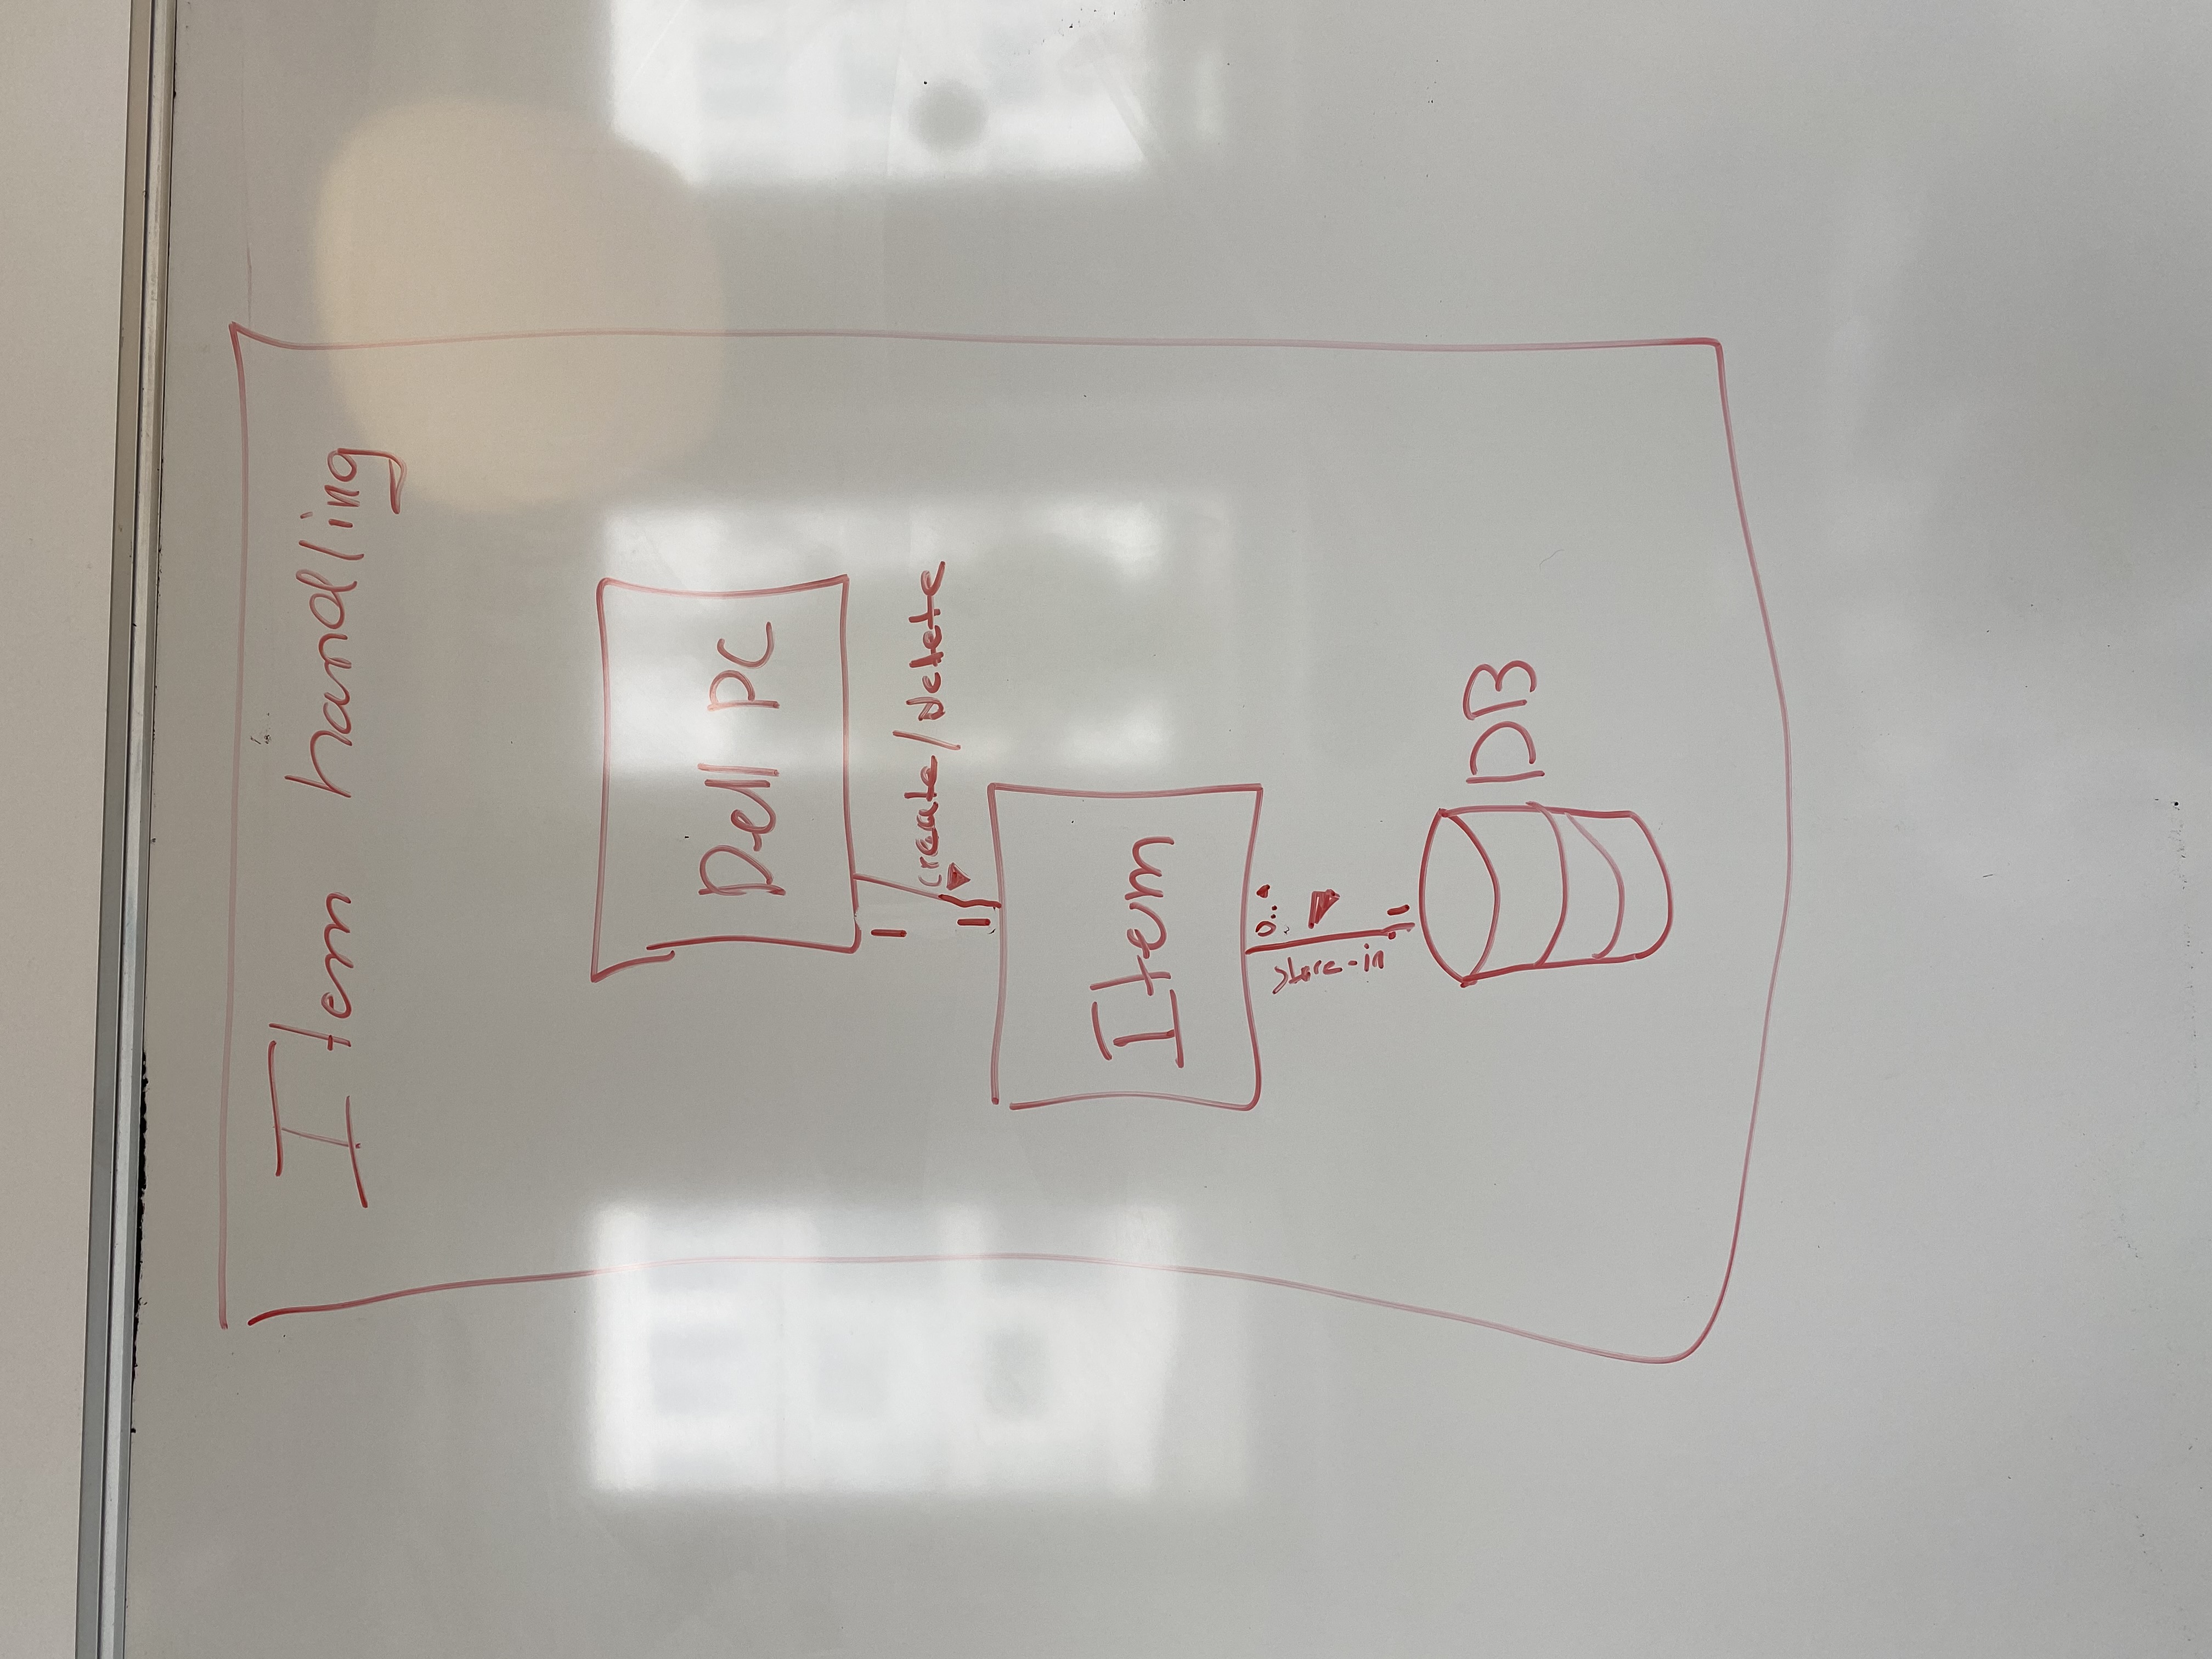 Item handling
Dell PC
1
create/delete
1
Item
0..*
store-in
1
DB